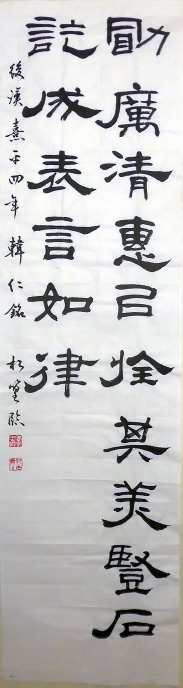 勖厲清惠㠯旌其美豎石
訖成表言如律
後漢熹平四年 韓仁銘 松臨